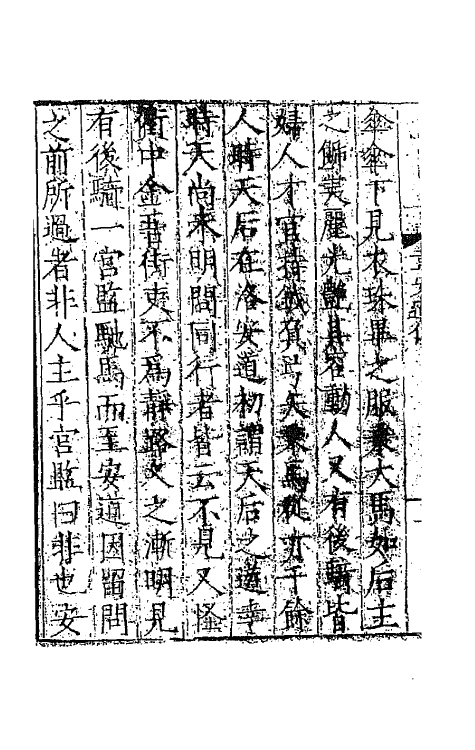 傘傘下見衣珠翠之服乘大馬如后主
之飾美麗光艷其容動人又有後騎皆
婦人才官持鉞負弓矢乘馬從亦千餘
人時天后在洛安道初謂天后之遊幸
時天尚未明問同行者皆云不見又怪
衢中金吾街吏不爲靜路久之漸明見
有後騎一宮監馳馬而至安道因留問
之前所過者非人主乎宮監曰非也安